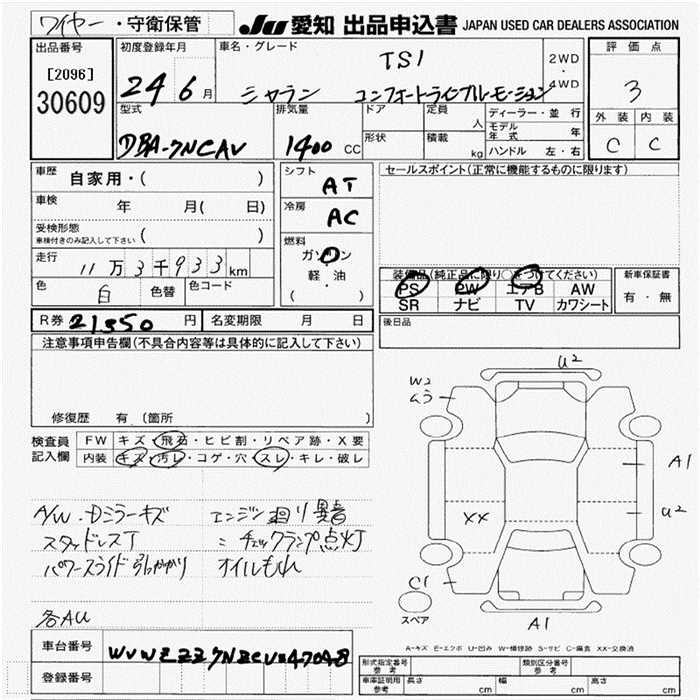 ワイヤー ・守衛保管 JU 愛知 出品申込書 JAPAN USED CAR DEALERS ASSOCIATION
出品番号 初度登録年月 車名・グレード 評価点
[2096] TSI 2WD
・
30609 24 6月 シャラン コンフォートラインブルーモーション 4WD 3
型式 排気量 ドア 定員 人 ディーラー・並行 外装 内装
モデル年式 年
DBA-7NCAV 1400 CC 形状 積載 kg ハンドル 左・右 C C
車歴 自家用・( ) シフト AT セールスポイント(正常に機能するものに限ります)
車検 年 月( 日) 冷房 AC
受検形態 ( )
車検付きのみ記入して下さい
燃料
走行 11万3千933km ガソリン 装備品(純正品に限り○をつけてください) 新車保証書
軽・油 PS PW エアB AW 有・無
色 白 色替 色コード ( ) SR ナビ TV カワシート
R券 21350 円 名変期限 月 日 後日品
注意事項申告欄(不具合内容等は具体的に記入して下さい)
U2
W2
ムラ
修復歴 有(箇所
検査員 FW キズ・飛石・ヒビ割・リペア跡・X要
記入欄 内装 キズ・汚レ・コゲ・穴・スレ・キレ・破レ
A1
A/W・Dミラーキズ エンジン廻り異音 XX U2
スタッドレスT ミ チェックランプ点灯
パワースライド引っかかり オイルもれ
C1
スペア
各AU A1
A-キズ E-エクボ U-凹み W-補修跡 S-サビ C-腐食 XX-交換済
車台番号 WVWZZZ7NZCV047048
登録番号 形式指定番号 参考 類別区分番号 参考
車庫証明用 参考 長さ cm 幅 cm 高さ cm